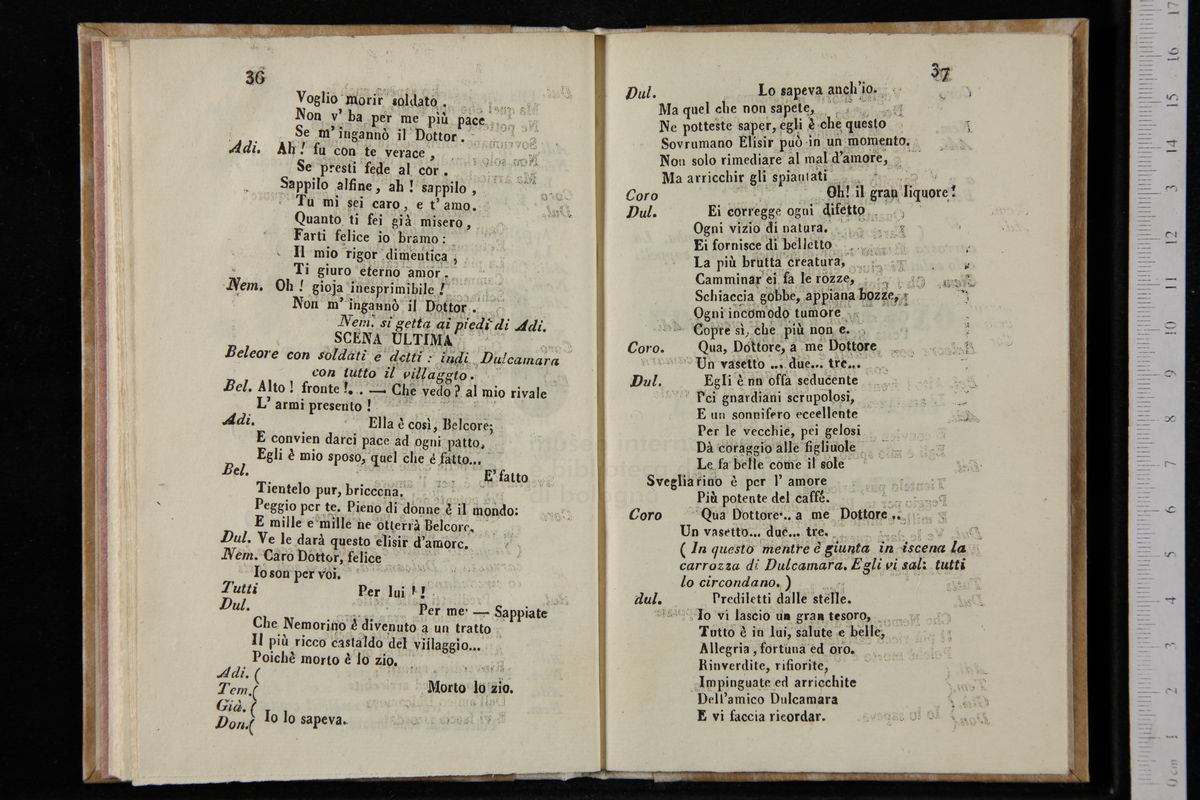 36
Voglio morir soldato.
Non v' ha per me più pace
Se m' ingannò il Dottor.
Adi. Ah! fu con te verace,
Se presti fede al cor.
Sappilo alfine, ah! sappilo,
Tu mi sei caro, e t' amo.
Quanto ti fei già misero,
Farti felice io bramo:
Il mio rigor dimentica,
Ti giuro eterno amor.
Nem. Oh! gioja inesprimibile!
Non m' ingannò il Dottor.
Nem. si getta ai piedi di Adi.
SCENA ULTIMA
Beleore con soldati e detti: indi Dulcamara
con tutto il villaggto.
Bel. Alto! fronte!.. — Che vedo? al mio rivale
L' armi presento!
Adi. Ella è così, Belcore;
E convien darci pace ad ogni patto.
Egli è mio sposo, quel che è fatto...
Bel. E' fatto
Tientelo pur, bricccna.
Peggio per te. Pieno di donne è il mondo:
E mille e mille ne otterrà Belcore.
Dul. Ve le darà questo elisir d'amore.
Nem. Caro Dottor, felice
Io son per voi.
Tutti Per lui!!
Dul. Per me — Sappiate
Che Nemorino è divenuto a un tratto
Il più ricco castaldo del villaggio...
Poichè morto è lo zio.
Adi. (
Tem. ( Morto lo zio.
Già. (
Don. ( Io lo sapeva.
37
Dul. Lo sapeva anch'io.
Ma quel che non sapete,
Ne potteste saper, egli è che questo
Sovrumano Elisir può in un momento.
Non solo rimediare al mal d'amore,
Ma arricchir gli spiantati
Coro Oh! il gran liquore!
Dul. Ei corregge ogni difetto
Ogni vizio di natura.
Ei fornisce di belletto
La più brutta creatura,
Camminar ei fa le rozze,
Schiaccia gobbe, appiana bozze,
Ogni incomodo tumore
Copre sì, che più non e.
Coro. Qua, Dottore, a me Dottore
Un vasetto ... due... tre...
Dul. Egli è nn offa seducente
Pei gnardiani scrupolosi,
E un sonnifero eccellente
Per le vecchie, pei gelosi
Dà coraggio alle figliuole
Le fa belle come il sole
Svegliarino è per l' amore
Più potente del caffé.
Coro Qua Dottore... a me Dottore ..
Un vasetto... due... tre.
( In questo mentre è giunta in iscena la
carrozza di Dulcamara. Egli vi sali: tutti
lo circondano. )
dul. Prediletti dalle stelle.
Io vi lascio un gran tesoro,
Tutto è in lui, salute e belle,
Allegria, fortuna ed oro.
Rinverdite, rifiorite,
Impinguate ed arricchite
Dell'amico Dulcamara
E vi faccia ricordar.